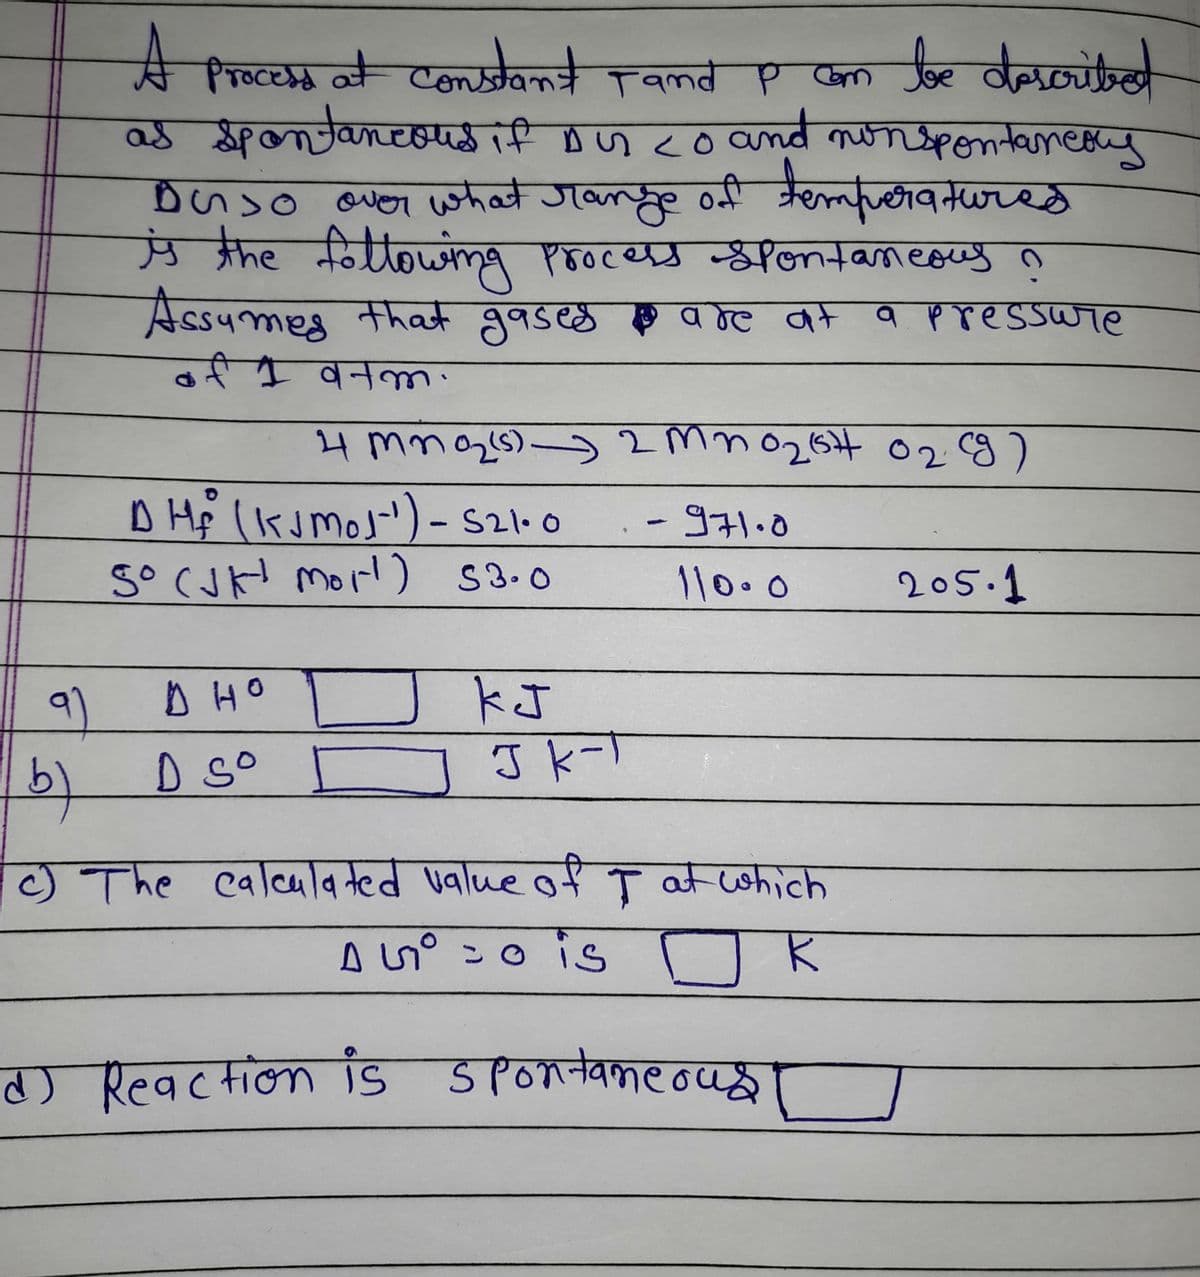 A process at constant T and P can be described
as spontaneous if ΔG <0 and nonspontaneous
ΔG>0 over what range of temperatures
is the following process spontaneous ?
Assumes that gases are at a pressure
of 1 atm.
4 MnO2(s) → 2 MnO2(s)+ O2(g)
ΔHf° (kJmol-1) - 521.0 - 971.0
S° (JK-1 mol-1) 53.0 110.0 205.1
a) ΔH° kJ
b) ΔS° J K-1
c) The calculated value of T at which
ΔG° = 0 is K
d) Reaction is spontaneous